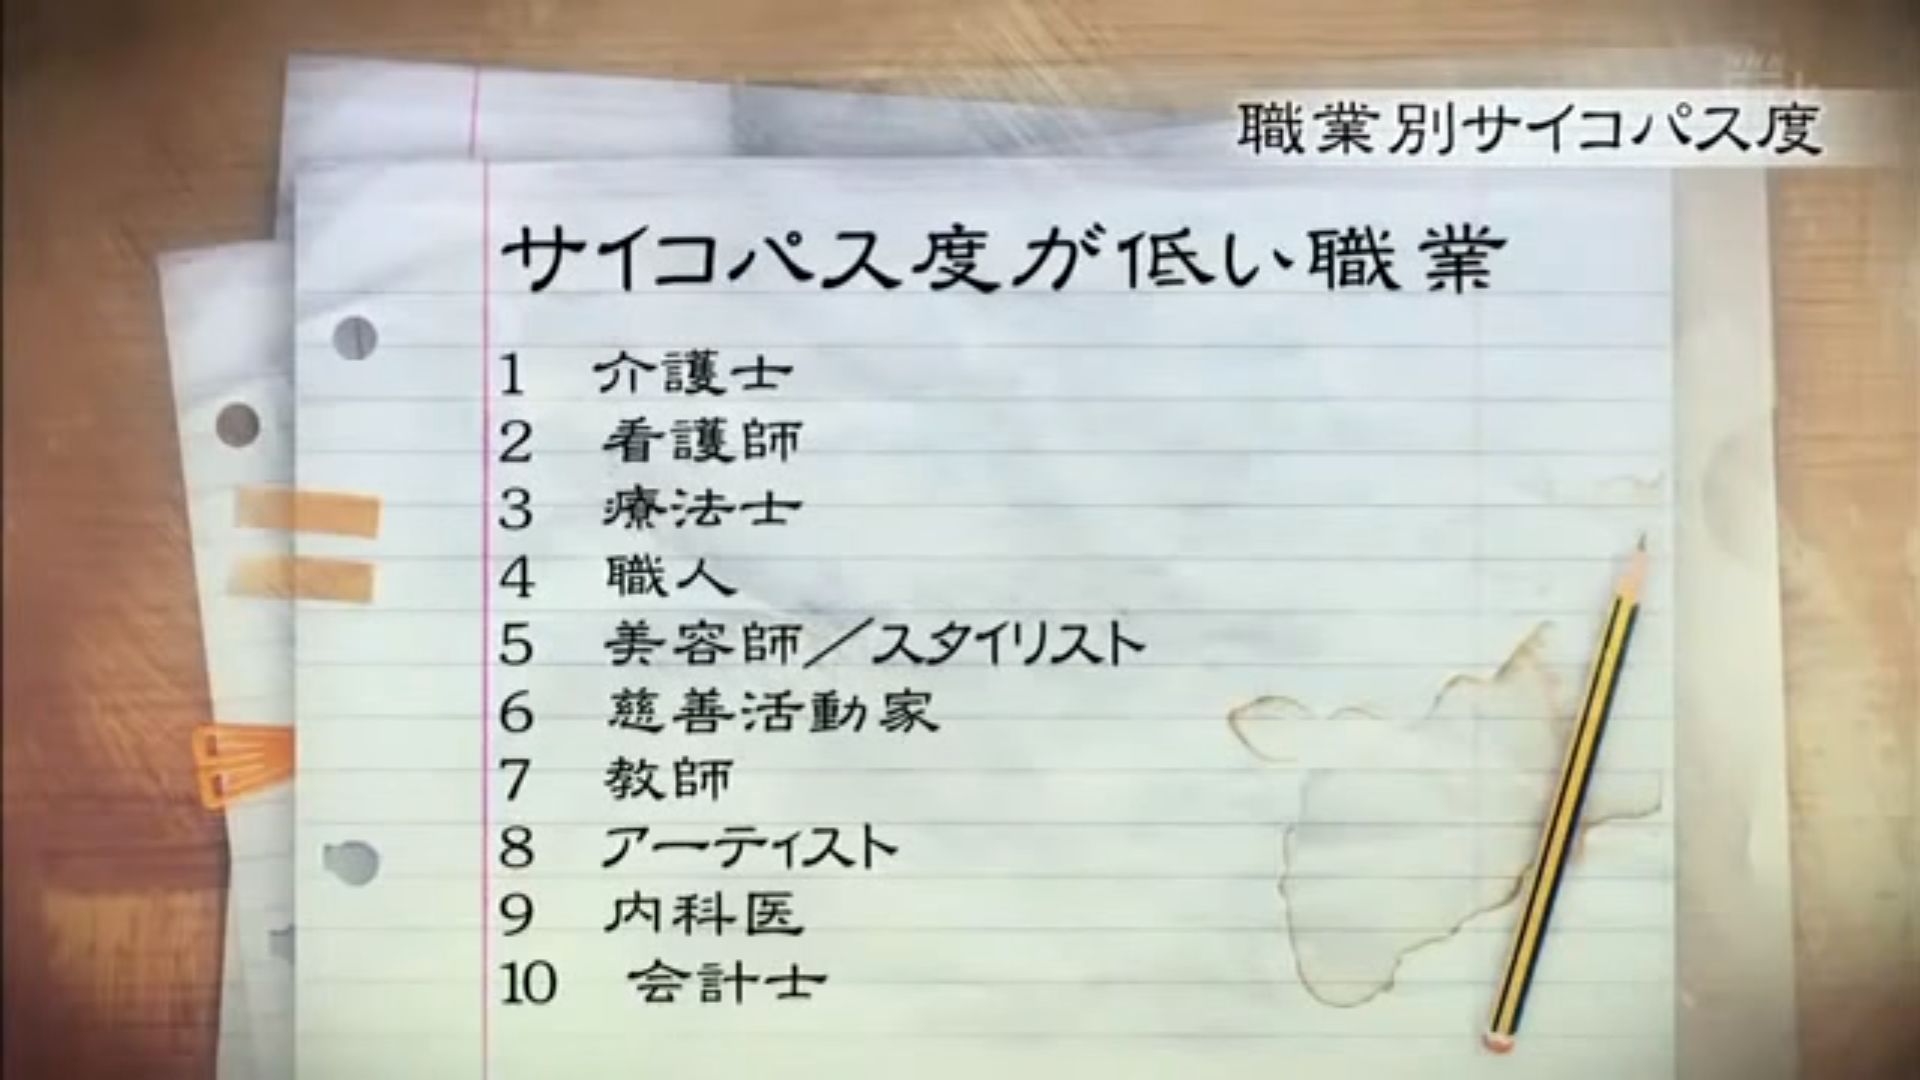 職業別サイコパス度
サイコパス度が低い職業
1 介護士
2 看護師
3 療法士
4 職人
5 美容師／スタイリスト
6 慈善活動家
7 教師
8 アーティスト
9 内科医
10 会計士